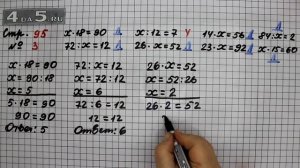 4 da 5.ru
Стр. 95
№ 3
x·18=90 Д
72:x=12 Д
x:12=7 У
26·x=52 Д
14·x=56 Д
23·x=92 Д
84:x=2 Д
x·15=60 Д
x·18=90
x=90:18
x=5
5·18=90
90=90
Ответ: 5
72:x=12
x=72:12
x=6
72:6=12
12=12
Ответ: 6
26·x=52
x=52:26
x=2
26·2=52